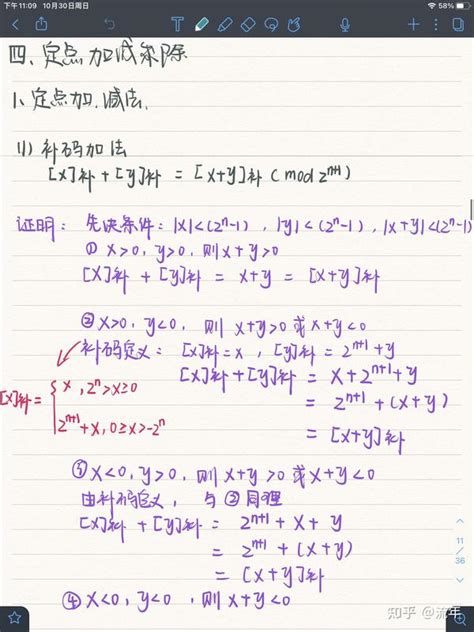 下午11:09 10月30日周日
58%
四、定点加减乘除
1、定点加、减法.
(1) 补码加法
[x]补 + [y]补 = [x+y]补 (mod 2ⁿ⁺¹)
证明: 先决条件: |x|<(2ⁿ-1), |y|<(2ⁿ-1), |x+y|<(2ⁿ-1)
① x>0, y>0, 则 x+y>0
[x]补 + [y]补 = x+y = [x+y]补
②x>0, y<0, 则 x+y>0 或 x+y<0
补码定义: [x]补=x, [y]补=2ⁿ⁺¹+y
[x]补+[y]补 = x+2ⁿ⁺¹+y
= 2ⁿ⁺¹+(x+y)
= [x+y]补
[x]补= { x, 2ⁿ>x≥0
2ⁿ⁺¹+x, 0≥x>-2ⁿ
③ x<0, y>0, 则 x+y>0 或 x+y<0
由补码定义, 与②同理
[x]补 + [y]补 = 2ⁿ⁺¹+x+y
= 2ⁿ⁺¹+(x+y)
= [x+y]补
④ x<0, y<0, 则 x+y<0
11
/
36
知乎 @流年